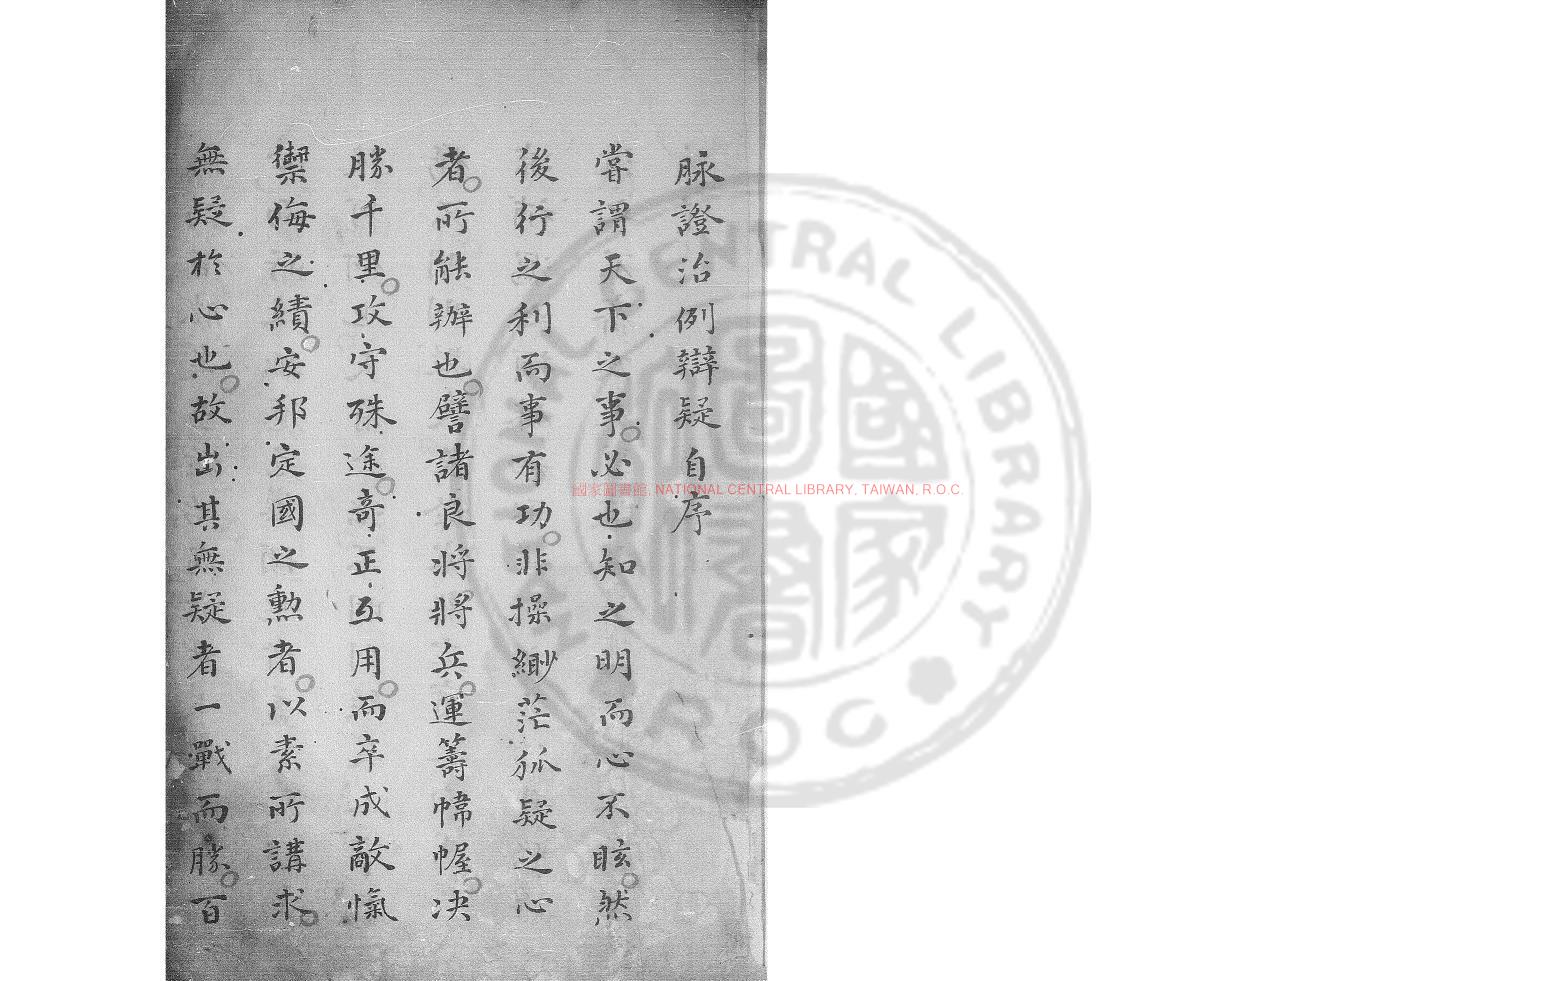 脉證治例辯疑自序
嘗謂天下之事必也知之明而心不眩然
後行之利而事有功非操緲茫狐疑之心
者所能辦也譬諸良將將兵運籌幃幄决
勝千里攻守殊途竒正互用而卒成敵愾
禦侮之績安邦定國之勲者以素所講求
無疑於心也故出其無疑者一戰而勝百
國家圖書館, NATIONAL CENTRAL LIBRARY, TAIWAN, R.O.C.
NATIONAL CENTRAL LIBRARY
ROC